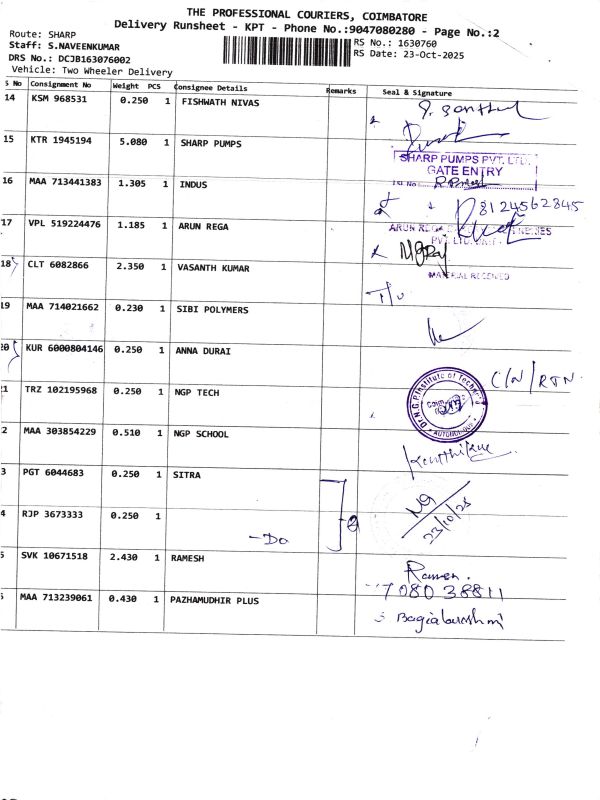 THE PROFESSIONAL COURIERS, COIMBATORE
Delivery Runsheet - KPT - Phone No.:9047080280 - Page No.:2
Route: SHARP
RS No.: 1630760
Staff: S.NAVEENKUMAR
RS Date: 23-Oct-2025
DRS No.: DCJB163076002
Vehicle: Two Wheeler Delivery
S No Consignment No Weight PCS Consignee Details Remarks Seal & Signature
14 KSM 968531 0.250 1 FISHWATH NIVAS
15 KTR 1945194 5.080 1 SHARP PUMPS
SHARP PUMPS PVT. LTD.
GATE ENTRY
16 MAA 713441383 1.305 1 INDUS
8124562845
17 VPL 519224476 1.185 1 ARUN REGA
ARUN REGA
PVT. LTD.
18 CLT 6082866 2.350 1 VASANTH KUMAR
MATERIAL RECEIVED
19 MAA 714021662 0.230 1 SIBI POLYMERS
T/U
20 KUR 6000804146 0.250 1 ANNA DURAI
C/N/RTN
1 TRZ 102195968 0.250 1 NGP TECH
Dr. N.G.P. Institute of Techno
2 MAA 303854229 0.510 1 NGP SCHOOL
3 PGT 6044683 0.250 1 SITRA
4 RJP 3673333 0.250 1
-Do
2
23/10/25
5 SVK 10671518 2.430 1 RAMESH
708038811
MAA 713239061 0.430 1 PAZHAMUDHIR PLUS